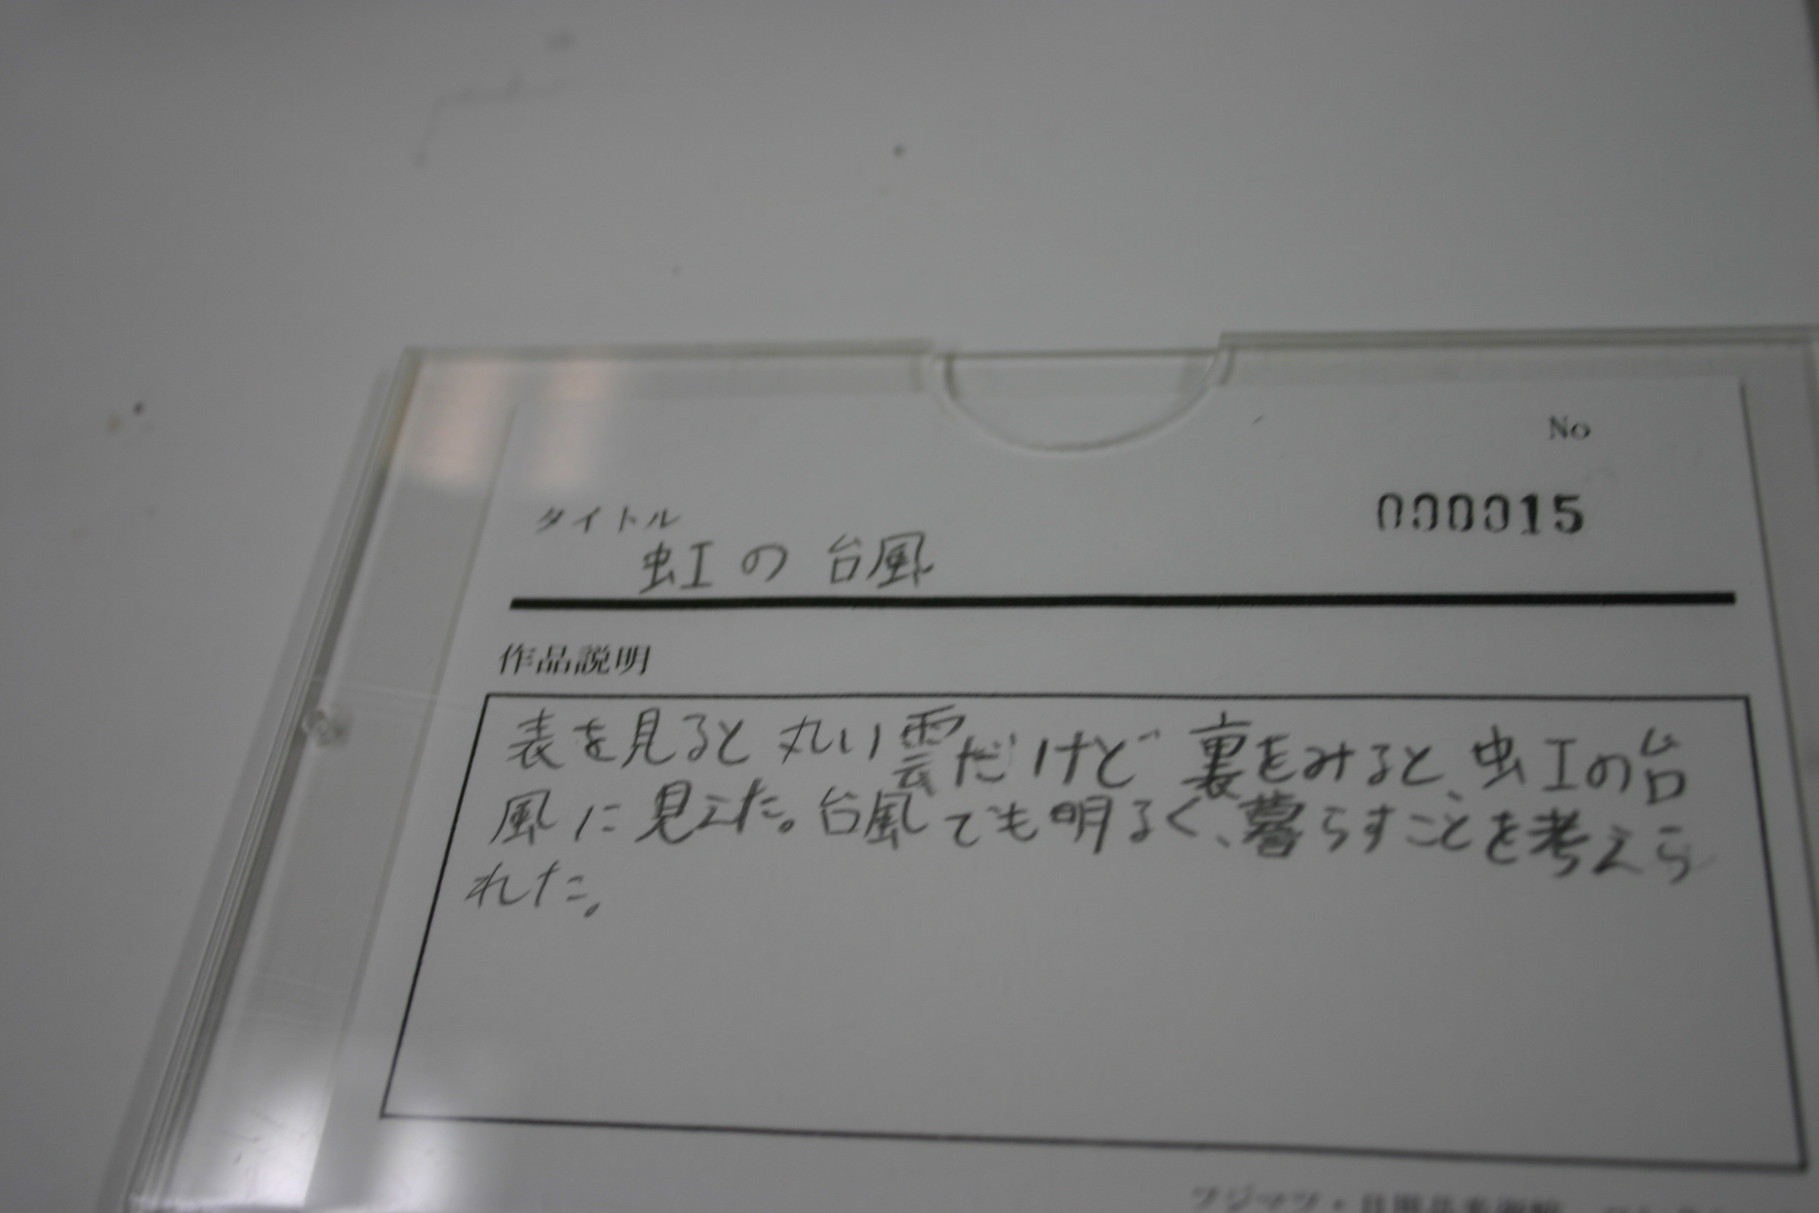 No
000015
タイトル
虹の台風
作品説明
表を見ると丸い雲だけど裏をみると、虹の台
風に見えた。台風でも明るく、暮らすことを考えら
れた。